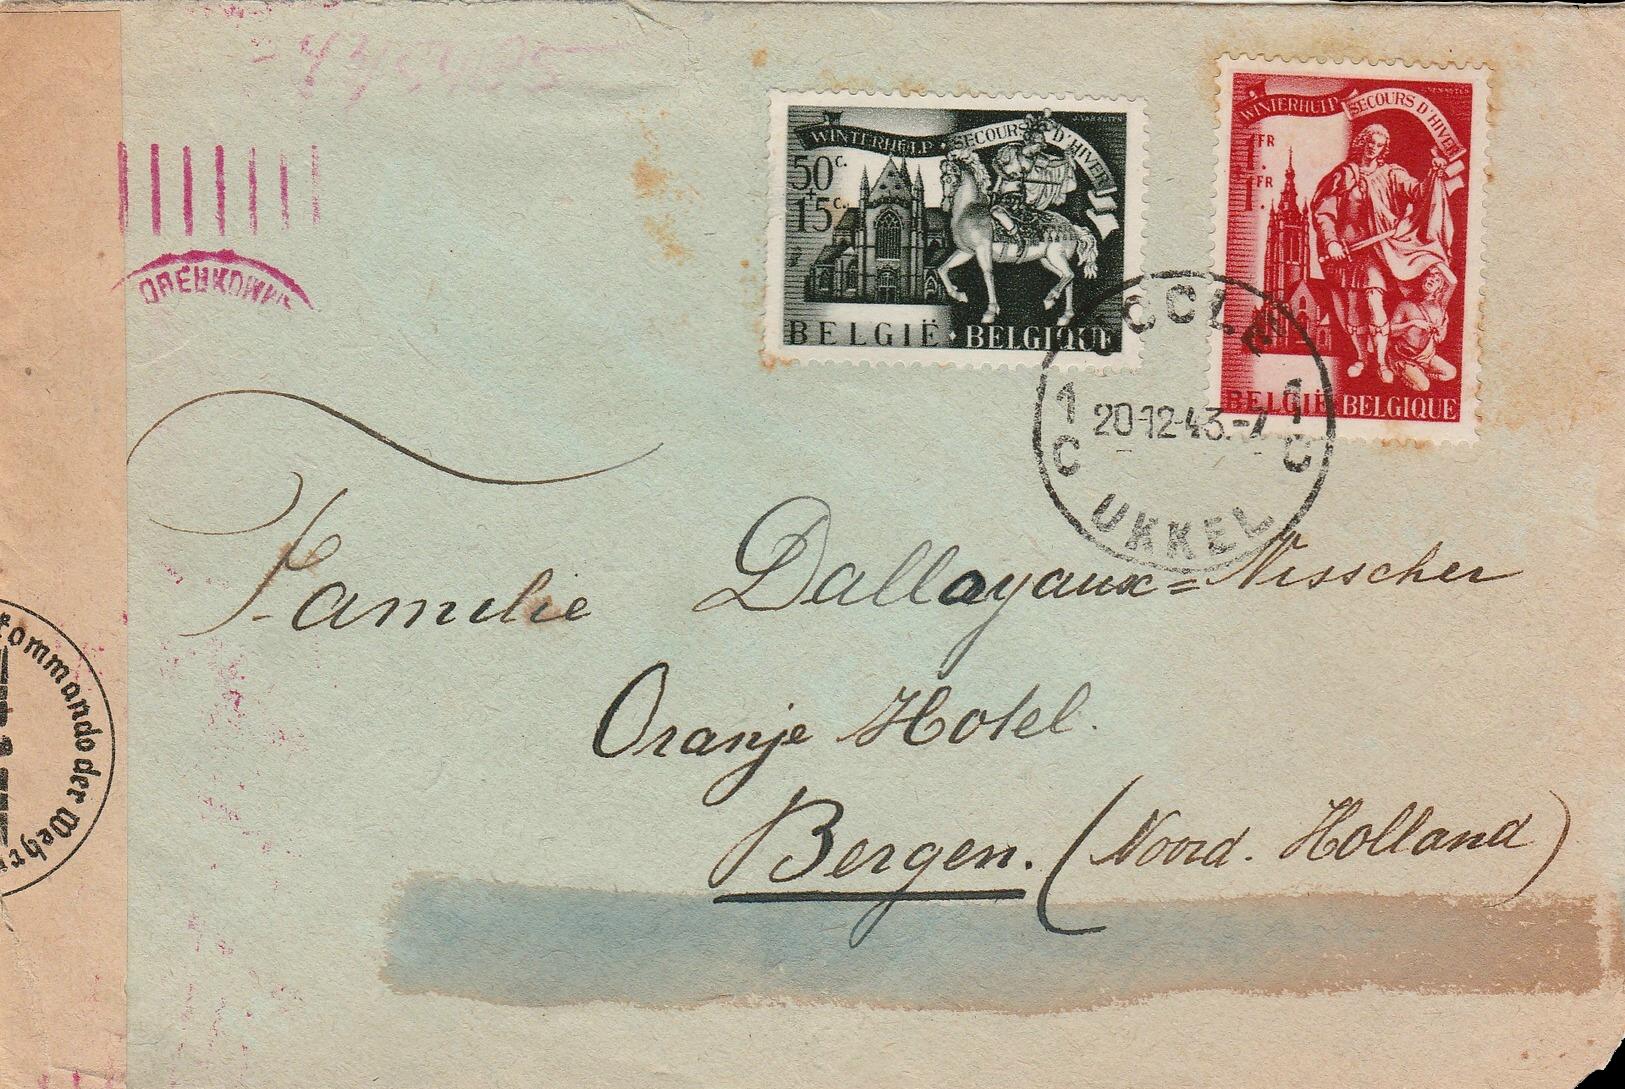 WINTERHULP SECOURS D'HIVER
50c.
+
15c.
BELGIË · BELGIQUE
WINTERHULP SECOURS D'HIVER
1FR
1FR
BELGIË BELGIQUE
UCCLE
1 20-12-43.-7 1
C C
UKKEL
Familie Dallayaux=Visscher
Oranje Hotel.
Bergen. (Noord. Holland)
kommando der Wehrm